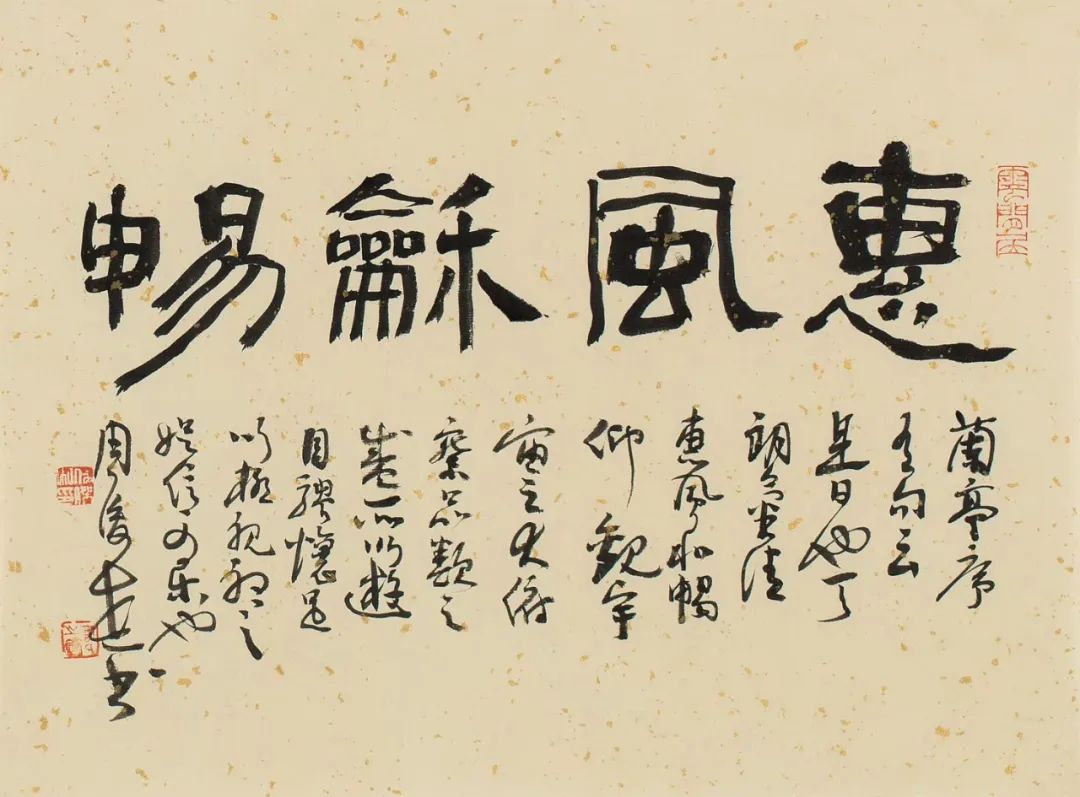 惠風龢暢
蘭亭序
有句云
是日也天
朗氣清
惠風和暢
仰觀宇
宙之大俯
察品類之
盛所以遊
目騁懷足
以極視聽之
娱信可樂也
周俊杰书